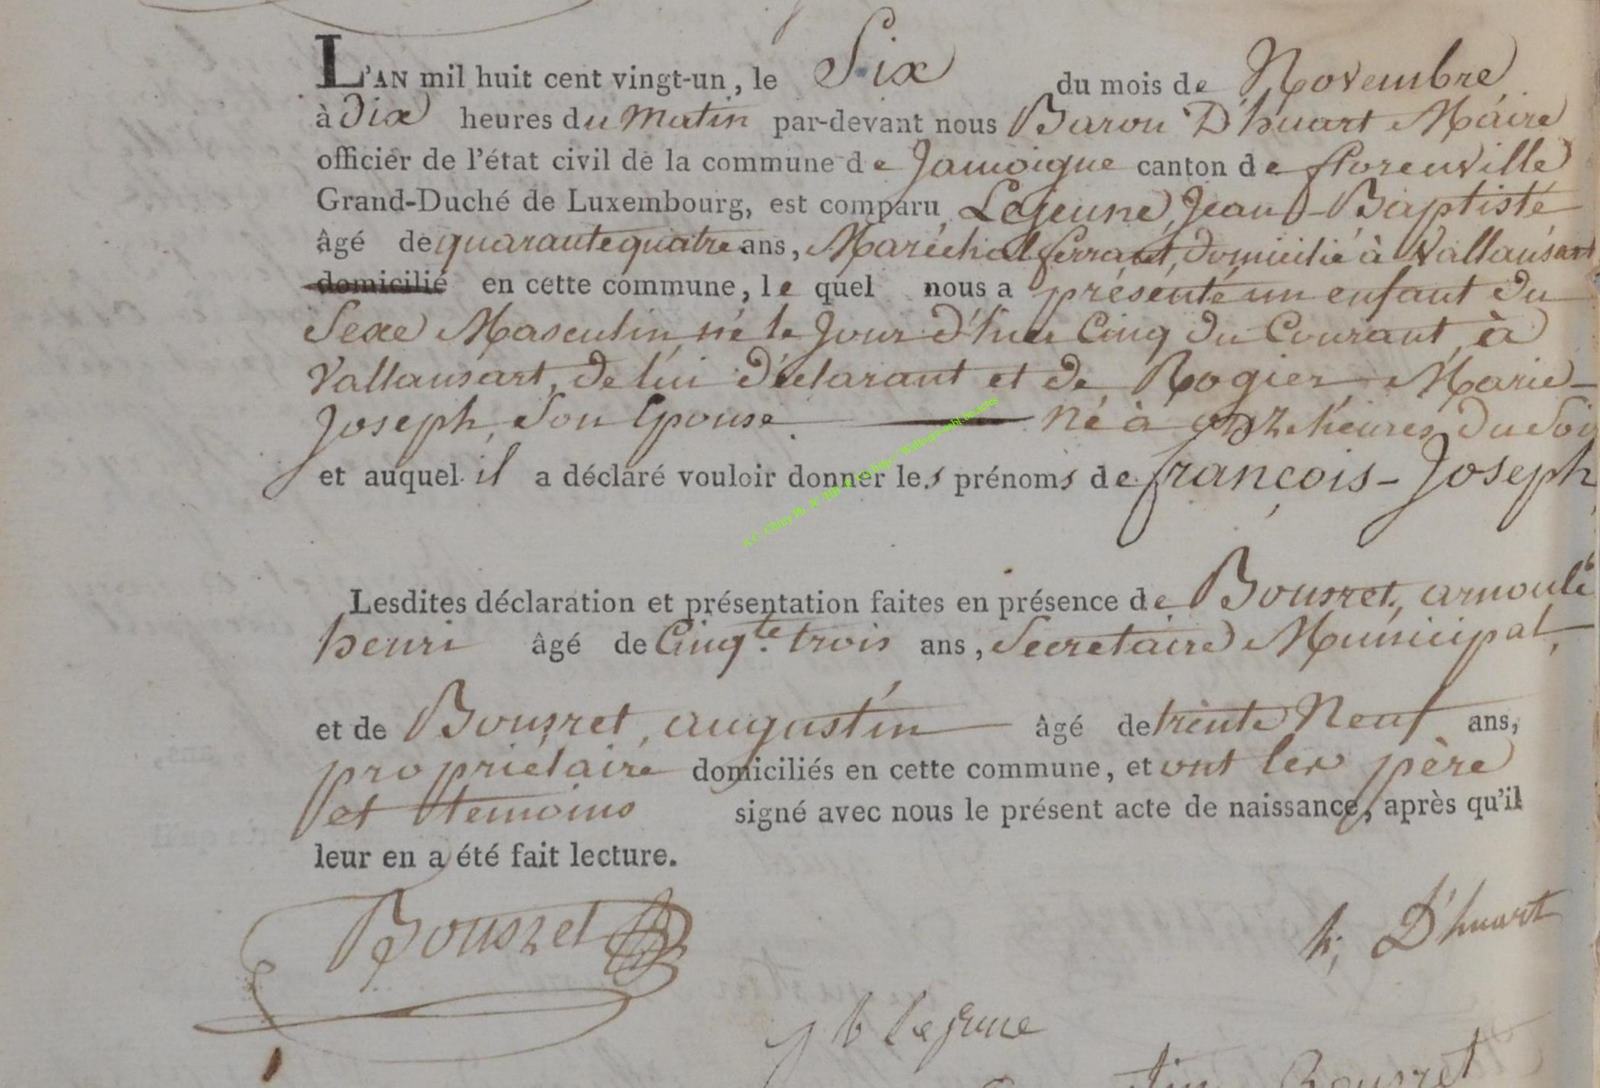 L'AN mil huit cent vingt-un, le Six du mois de Novembre
à dix heures du matin par-devant nous Baron D'huart Maire
officier de l'état civil de la commune de Jamoigne canton de florenville
Grand-Duché de Luxembourg, est comparu Lejeune, Jean-Baptiste
âgé de quarante quatre ans, Maréchal ferrant, domicilié à Vallansart
domicilié en cette commune, le quel nous a présenté un enfant du
Sexe Masculin, né le Jour d'hier Cinq du Courant, à
Vallansart, de lui déclarant et de Rogier, Marie-
Joseph, Son Epouse. né à onze heures du Soir
et auquel il a déclaré vouloir donner les prénoms de françois-Joseph
Lesdites déclaration et présentation faites en présence de Bousret, arnould
henri âgé de Cinqte. trois ans, Secretaire Municipal,
et de Bousret, augustin âgé de trente Neuf ans,
propriétaire domiciliés en cette commune, et ont les père
et temoins signé avec nous le présent acte de naissance, après qu'il
leur en a été fait lecture.
Bousret
h; D'huart
j b lejeune
Bousret